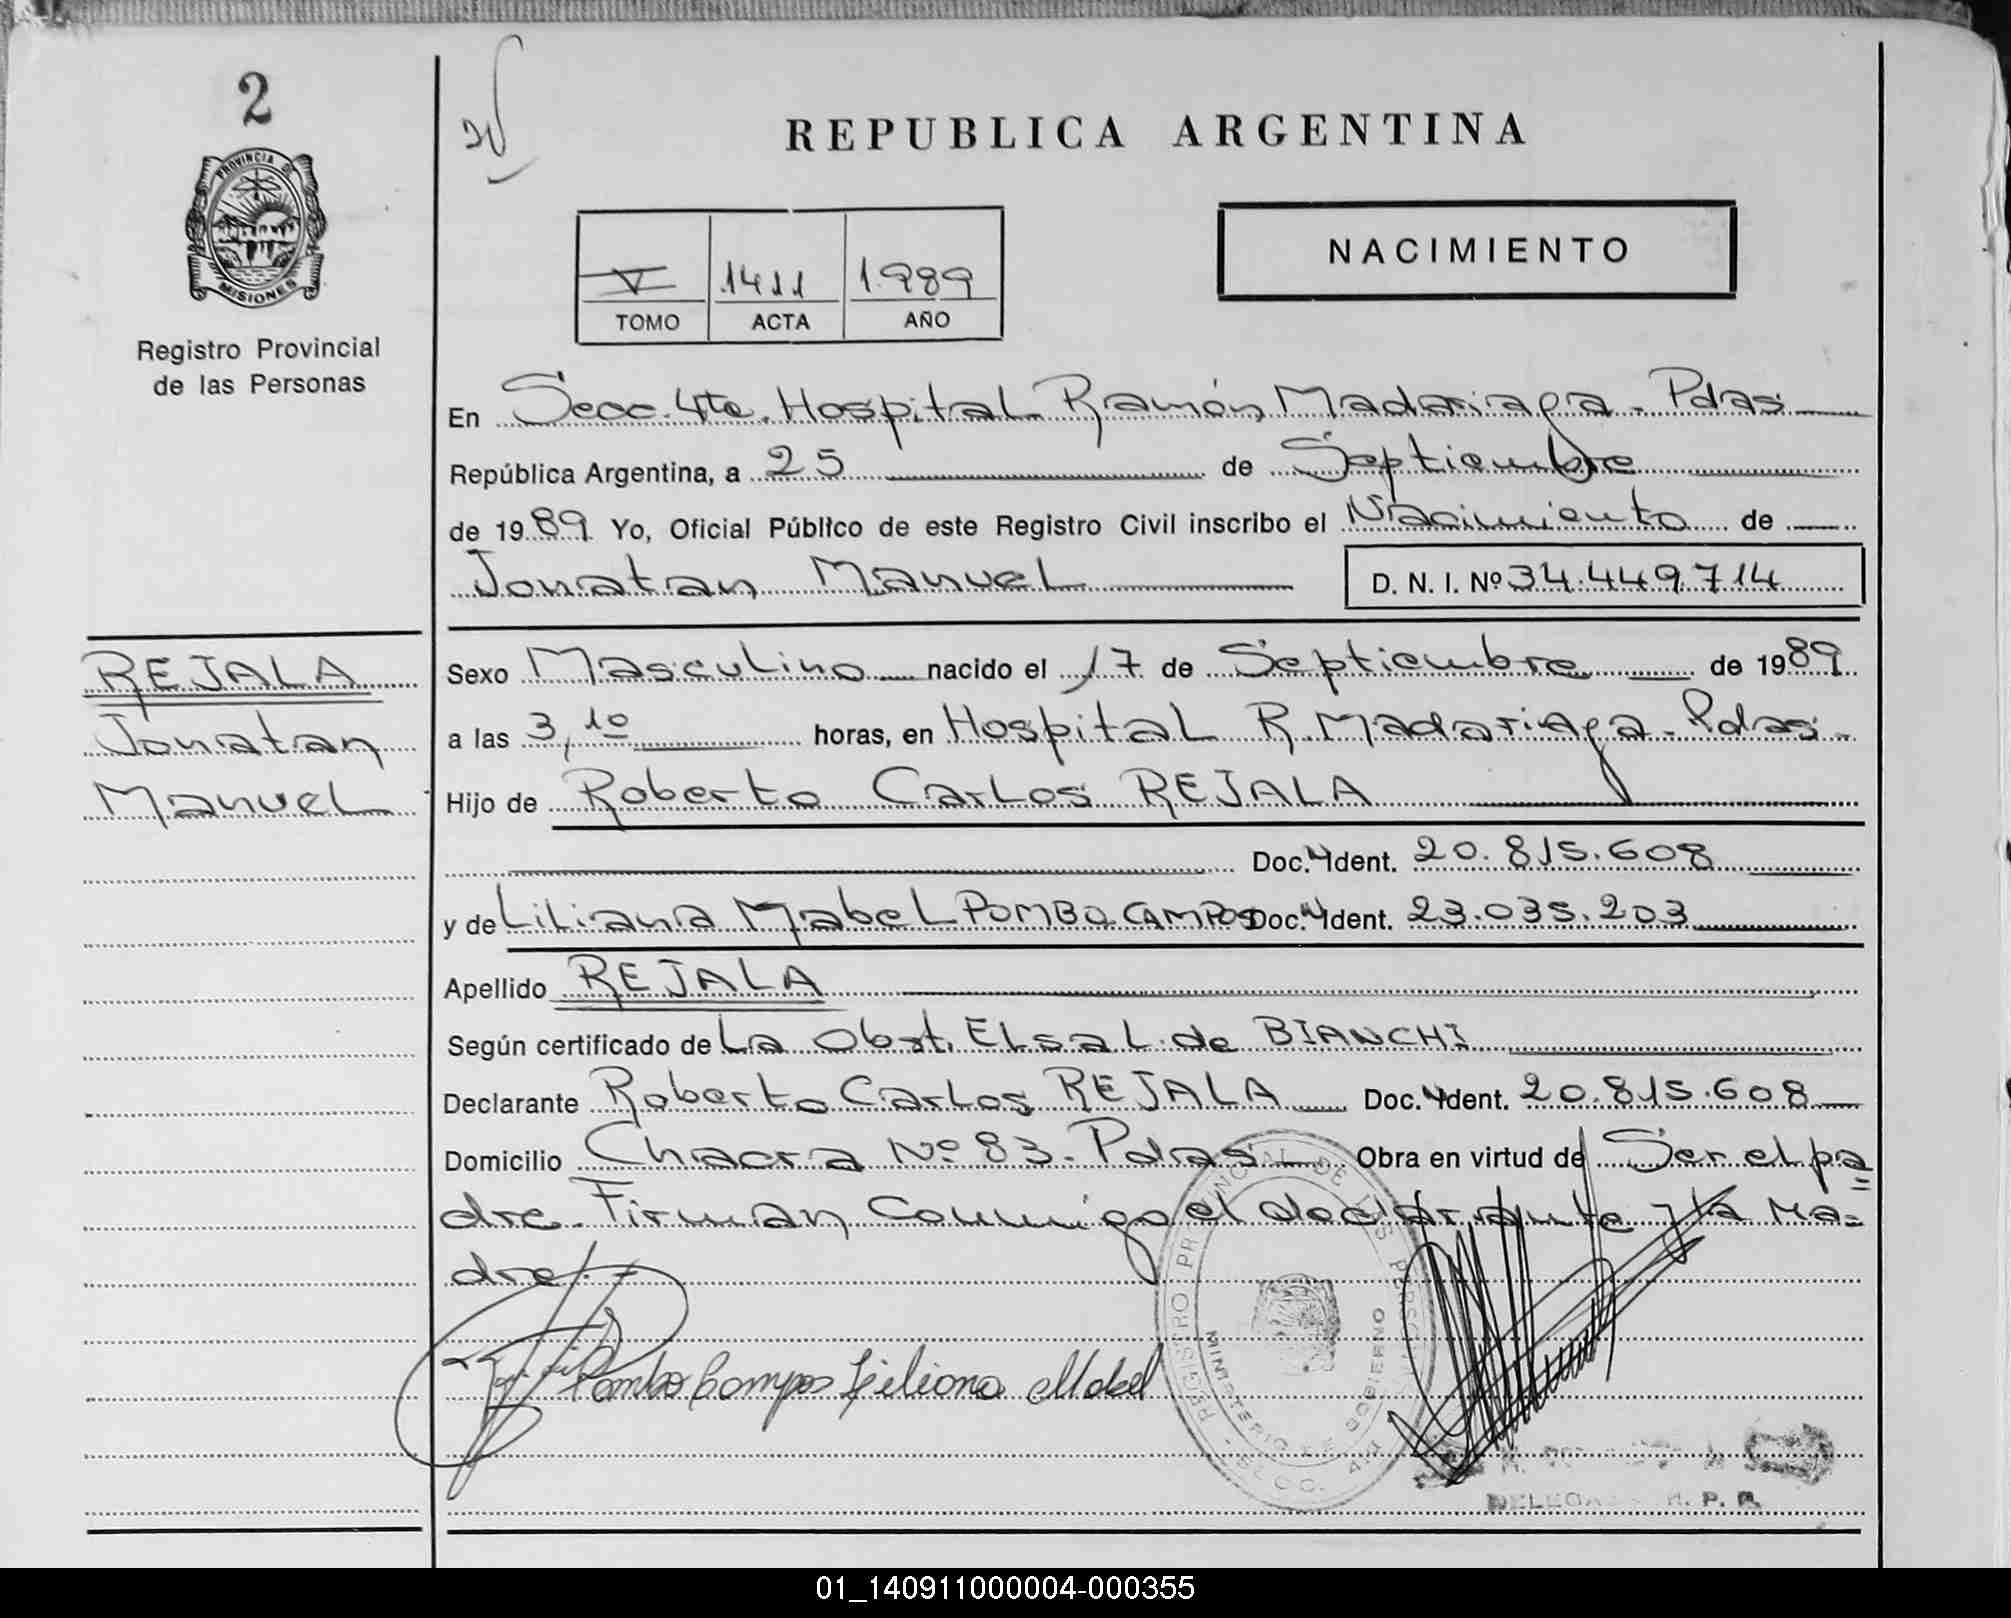 2
PROVINCIA DE
MISIONES
Registro Provincial
de las Personas
REPUBLICA ARGENTINA
V 1411 1.989
TOMO ACTA AÑO
NACIMIENTO
En Secc. 4ta. Hospital Ramón Madariaga. Pdas
República Argentina, a 25 de Septiembre
de 1989 Yo, Oficial Público de este Registro Civil inscribo el Nacimiento de
Jonatan Manuel D. N. I. Nº 34.449.714
REJALA
Jonatan
Manuel
Sexo Masculino nacido el 17 de Septiembre de 1989
a las 3,10 horas, en Hospital R. Madariaga. Pdas.
Hijo de Roberto Carlos REJALA
Doc. Ident. 20.815.608
y de Liliana Mabel POMBO CAMPOS Doc. Ident. 23.035.203
Apellido REJALA
Según certificado de La Obst. Elsa L. de BIANCHI
Declarante Roberto Carlos REJALA Doc. Ident. 20.815.608
Domicilio Chacra Nº 83. Pdas. Obra en virtud de Ser el pa
dre. Firman Conmigo el declarante y la Ma=
dre.
Pombo Campos Liliana Mabel
REGISTRO PROVINCIAL DE LAS PERSONAS
MINISTERIO DE GOBIERNO
01_140911000004-000355